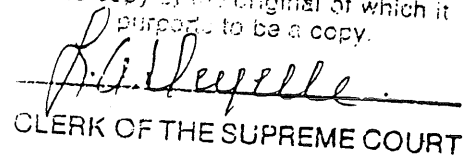 copy of the original of which it
purports to be a copy.
CLERK OF THE SUPREME COURT